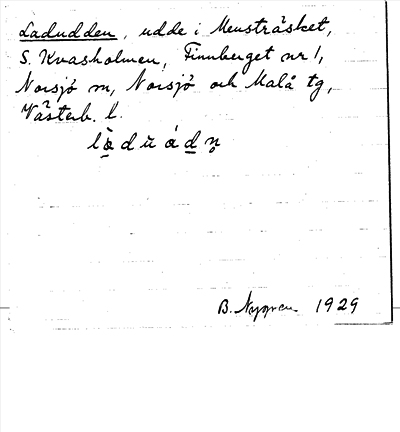 Ladudden, udde i Mensträsket,
S. Kvasholmen, Finnberget nr 1,
Norsjö sn, Norsjö och Malå tg,
Västerb. l.
B. Nygren 1929